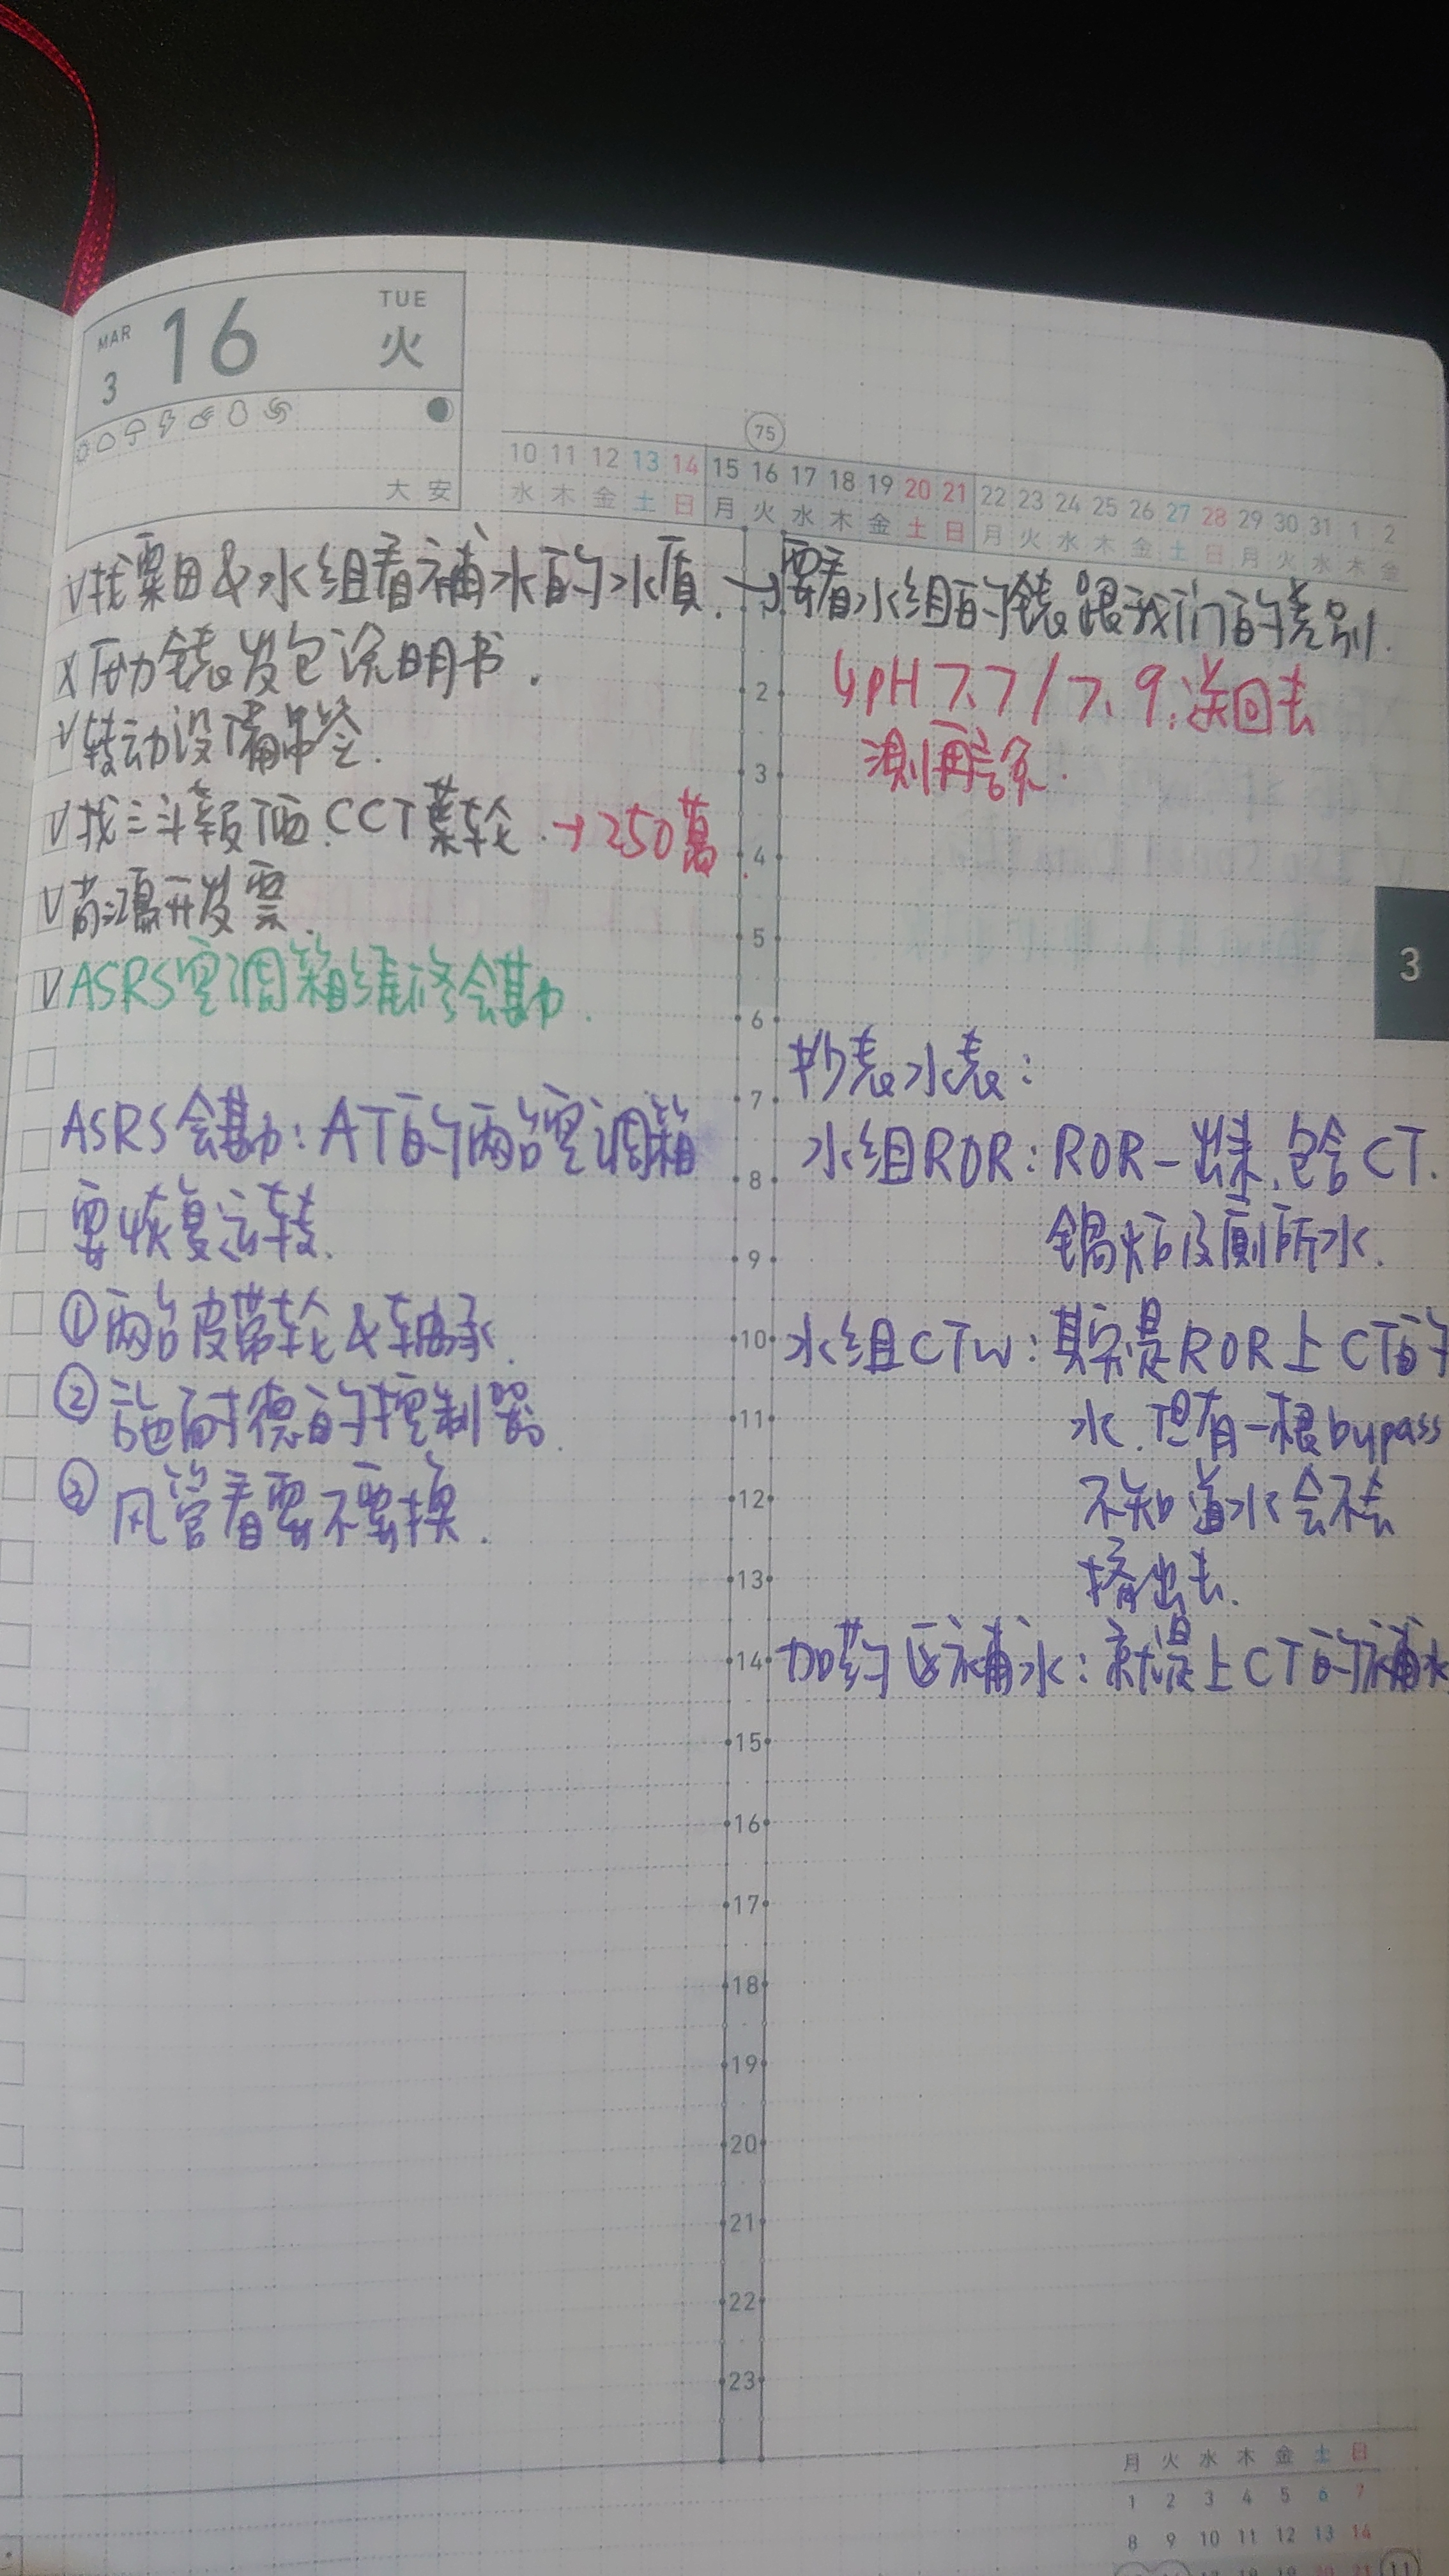 MAR
3
16
TUE
火
大安
75
10 11 12 13 14 15 16 17 18 19 20 21 22 23 24 25 26 27 28 29 30 31 1 2
水 木 金 土 日 月 火 水 木 金 土 日 月 火 水 木 金 土 日 月 火 水 木 金
V 找粟田&水组看補水的水質. → 要看水组的錶跟我们的差别.
↳pH 7.7/7.9,送回去
測再說.
X 压力錶发包说明书.
V 转动设備申 .
V 找三斗報価. CCT葉轮. → 250萬.
V 尚鴻开发票.
V ASRS空调箱维修会勘.
ASRS会勘: AT的两台空调箱
要恢复运转.
① 两台皮带轮&轴承.
② 施耐德的控制器.
③ 风管看要不要换.
抄表水表:
水组ROR: ROR-出来,包含CT.
鍋炉及廁所水.
水组CTW: 其实是ROR上CT的
水.但有一根bypass
不知道水会不会
擠出去.
加药区補水: 就是上CT的補水
2
3
4
5
6
7
8
9
10
11
12
13
14
15
16
17
18
19
20
21
22
23
3
月 火 水 木 金 土 日
1 2 3 4 5 6 7
8 9 10 11 12 13 14